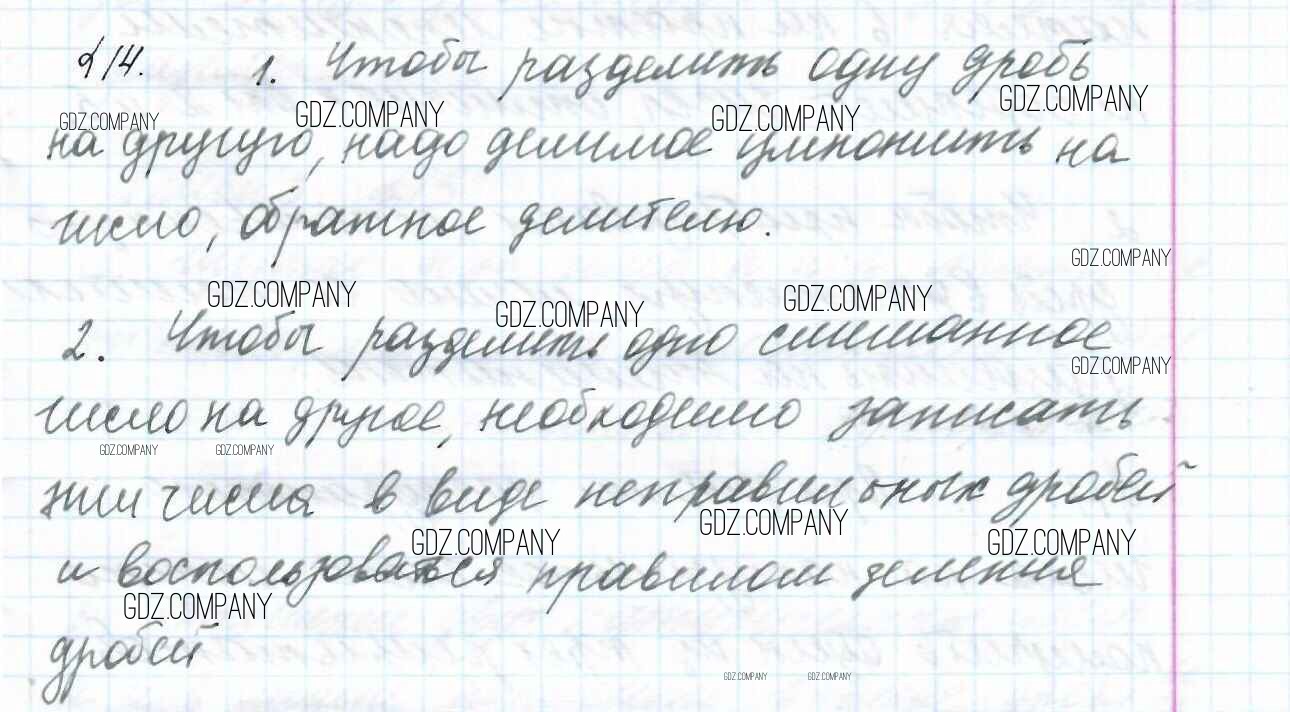 §14. 1. Чтобы разделить одну дробь
GDZ.COMPANY GDZ.COMPANY GDZ.COMPANY GDZ.COMPANY
на другую, надо делимое умножить на
число, обратное делителю.
GDZ.COMPANY
GDZ.COMPANY GDZ.COMPANY GDZ.COMPANY
2. Чтобы разделить одно смешанное
GDZ.COMPANY
число на другое, необходимо записать
GDZ.COMPANY GDZ.COMPANY
эти числа в виде неправильных дробей
GDZ.COMPANY GDZ.COMPANY GDZ.COMPANY
и воспользоваться правилом деления
GDZ.COMPANY
дробей
GDZ.COMPANY GDZ.COMPANY